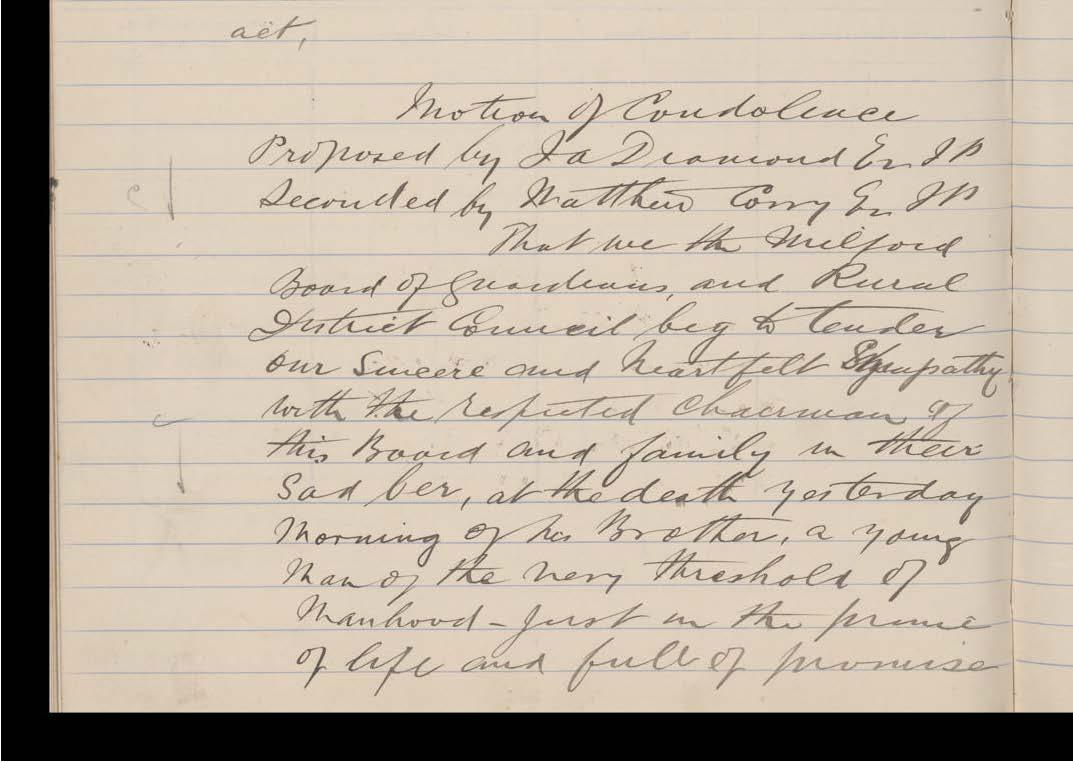 act,
Motion of Condolence
Proposed by Ja Diamond Er JP
Seconded by Matthew Corry Er JP
That we the Milford
Board of Guardians, and Rural
District Council beg to tender
our Sincere and heartfelt Sympathy
with the respected Chairman of
this Board and family in their
Sad ber, at the death yesterday
Morning of his Brother, a young
Man of the very threshold of
Manhood - Just in the prime
of life and full of promise